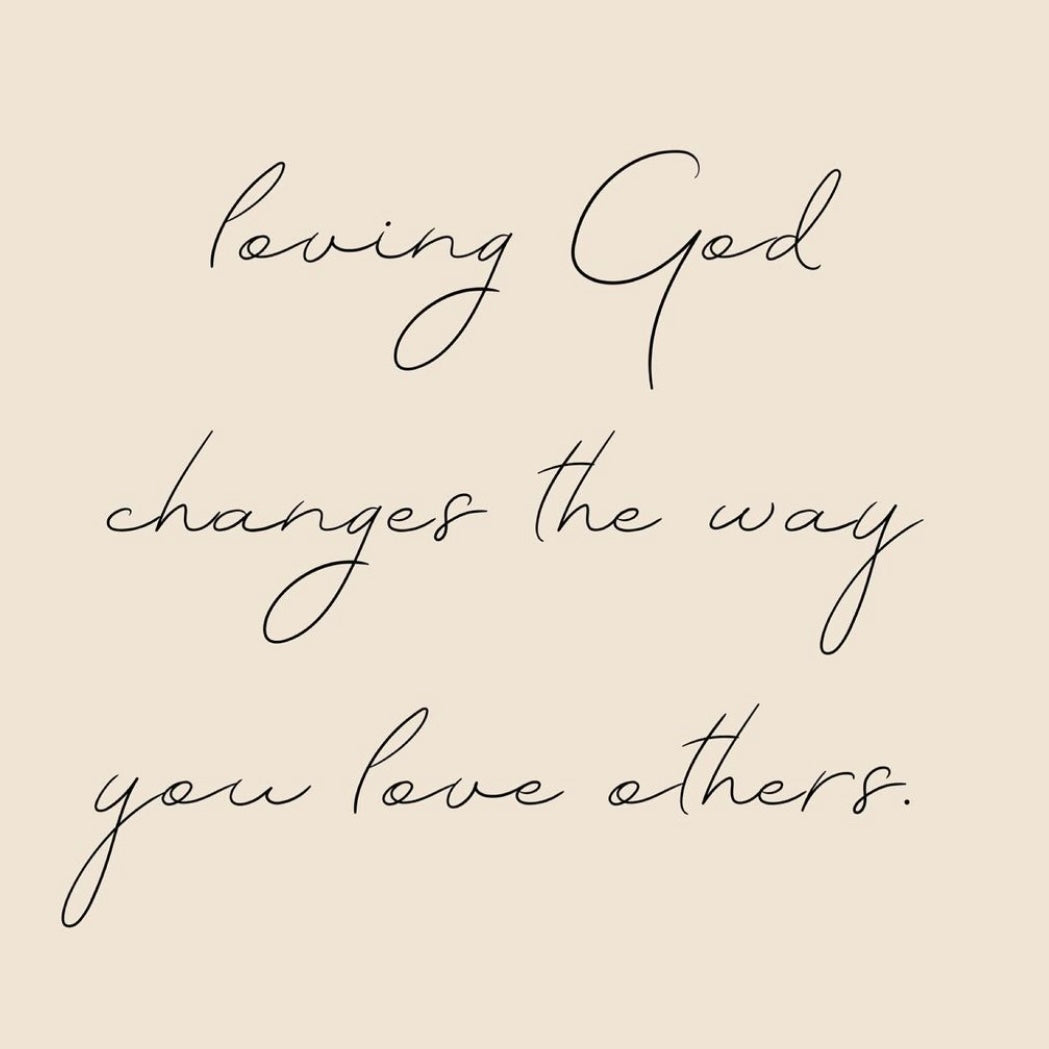 loving God
changes the way
you love others.